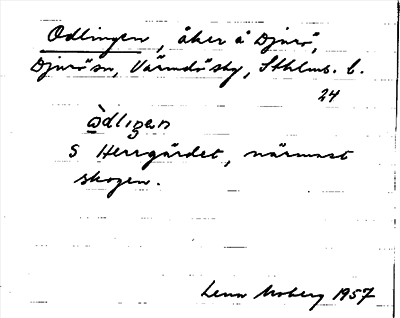 Odlingen, åker å Djurö,
Djurö sn, Värmdö skg, Sthlms. l.
24
òdlıŋen
S Herrgärdet, närmast
skogen.
Lena Moberg 1957